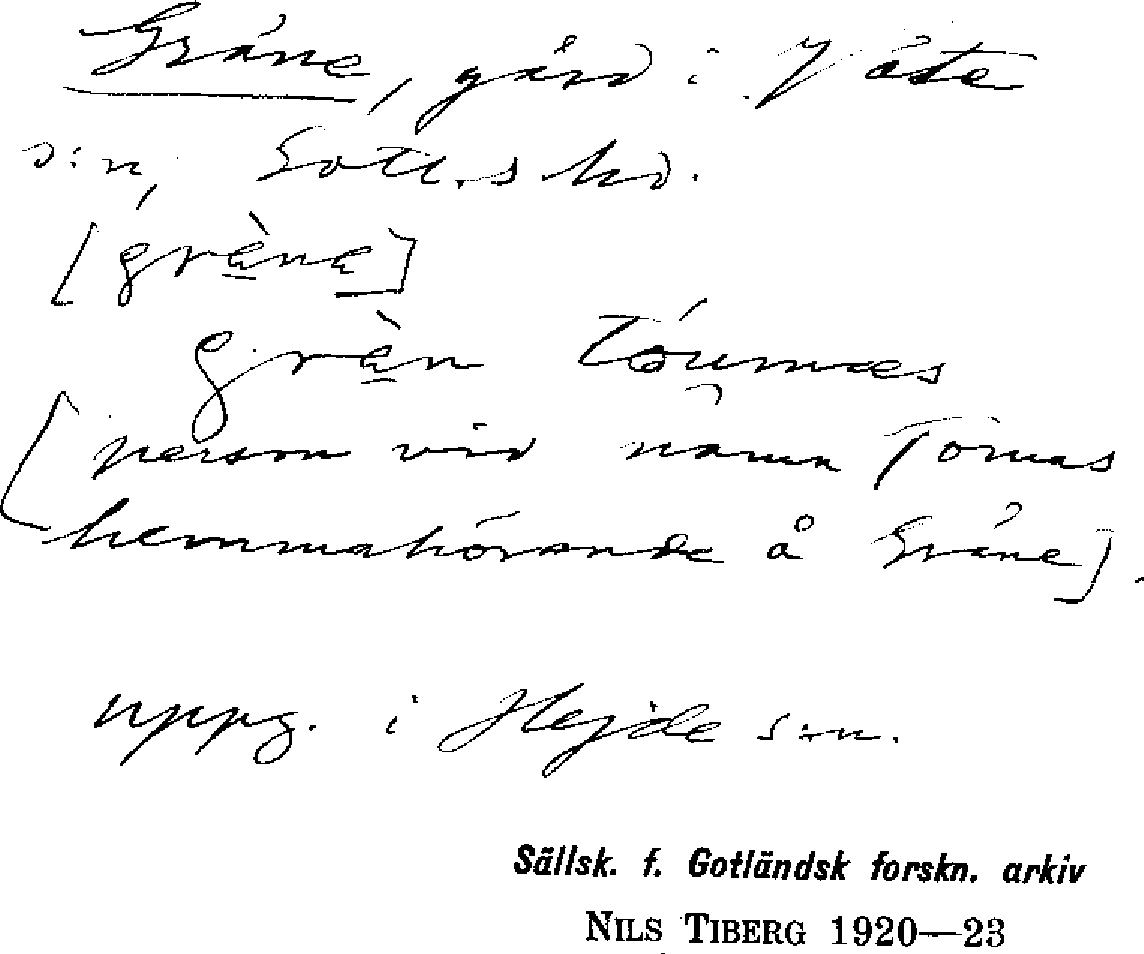 Gråne, gård i Väte
s:n, Gotl.s hd.
[gràna]
gràn tóumas
[person vid namn Tomas
hemmahörande å Gråne].
uppg. i Hejde s:n.
Sällsk. f. Gotländsk forskn. arkiv
NILS TIBERG 1920—23